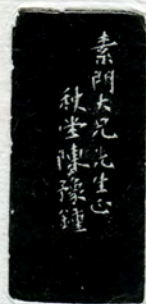 素門大兄先生正
秋堂陳豫鍾